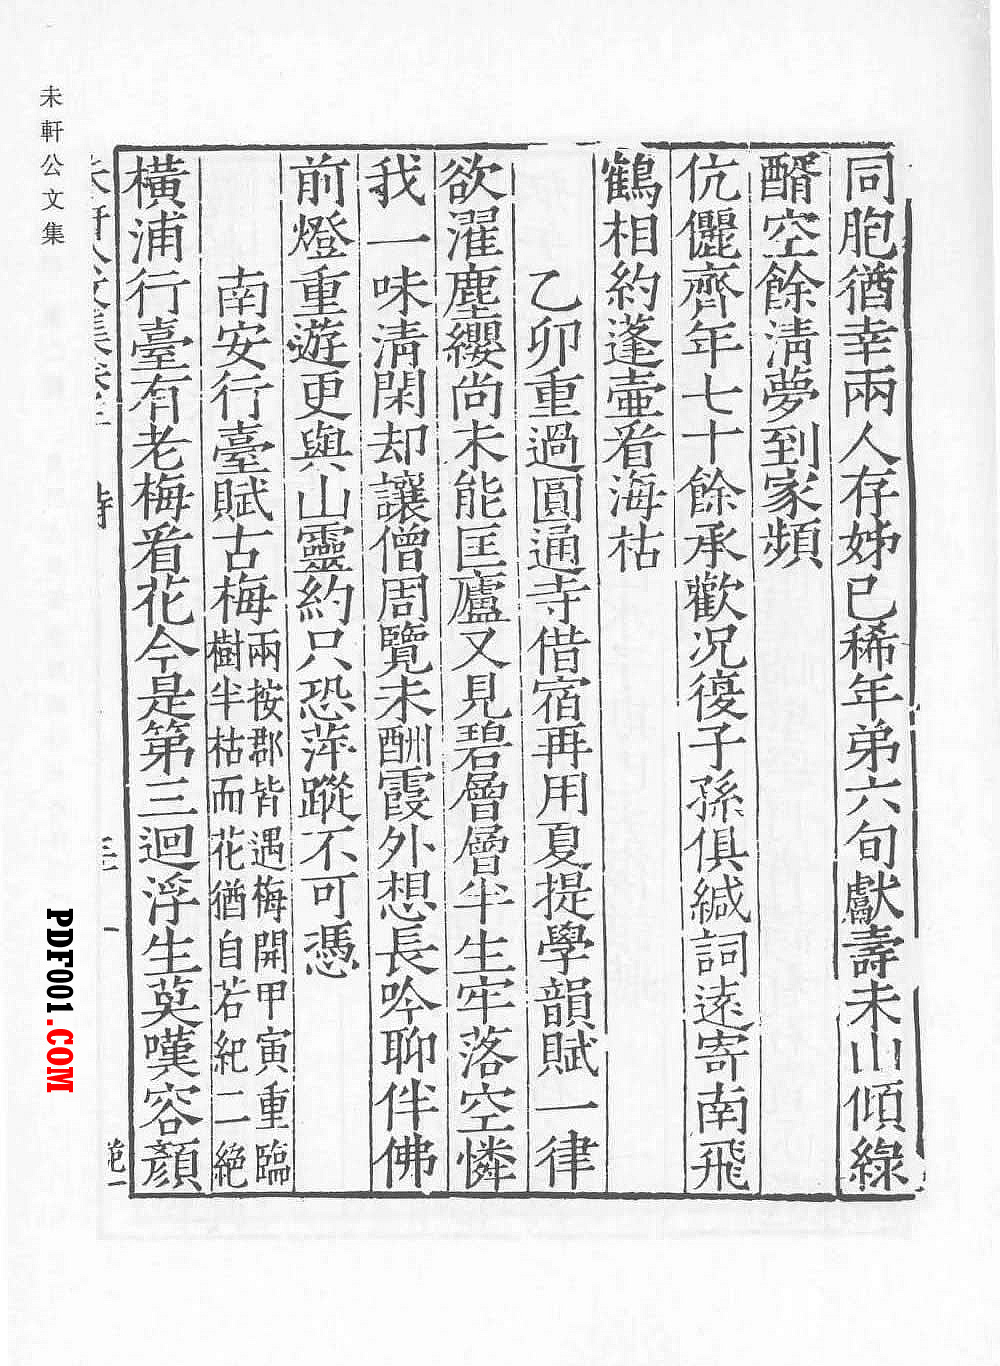 同胞猶幸兩人存姊已稀年弟六旬獻壽未山傾綠
醑空餘淸夢到家頻
伉儷齊年七十餘承歡况復子孫俱緘詞遠寄南飛
鶴相約蓬壷看海枯
乙卯重過圓通寺借宿再用夏提學韻賦一律
欲濯塵纓尚未能匡廬又見碧層層半生牢落空憐
我一味淸閑却讓僧周覽未酬霞外想長吟聊伴佛
前燈重遊更與山靈約只恐萍蹤不可憑
南安行臺賦古梅兩按郡皆遇梅開甲寅重臨
樹半枯而花猶自若紀二絶
橫浦行臺有老梅看花今是第三迴浮生莫嘆容顏
未軒公文集
PDF001.COM